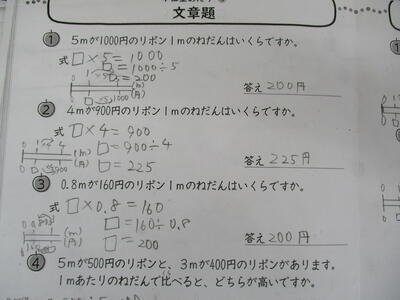 文章題
① 5mが1000円のリボン1mのねだんはいくらですか。
式 □×5=1000
□=1000÷5
□=200
0 1 5 (m)
0 □ 1000 (円)
答え 200円
② 4mが900円のリボン1mのねだんはいくらですか。
□×4=900
□=900÷4
□=225
0 1 4 (m)
0 □ 900 (円)
答え 225円
③ 0.8mが160円のリボン1mのねだんはいくらですか。
式 □×0.8=160
□=160÷0.8
□=200
(m)
(円)
答え 200円
④ 5mが500円のリボンと、3mが400円のリボンがあります。
1mあたりのねだんで比べると、どちらが高いですか。